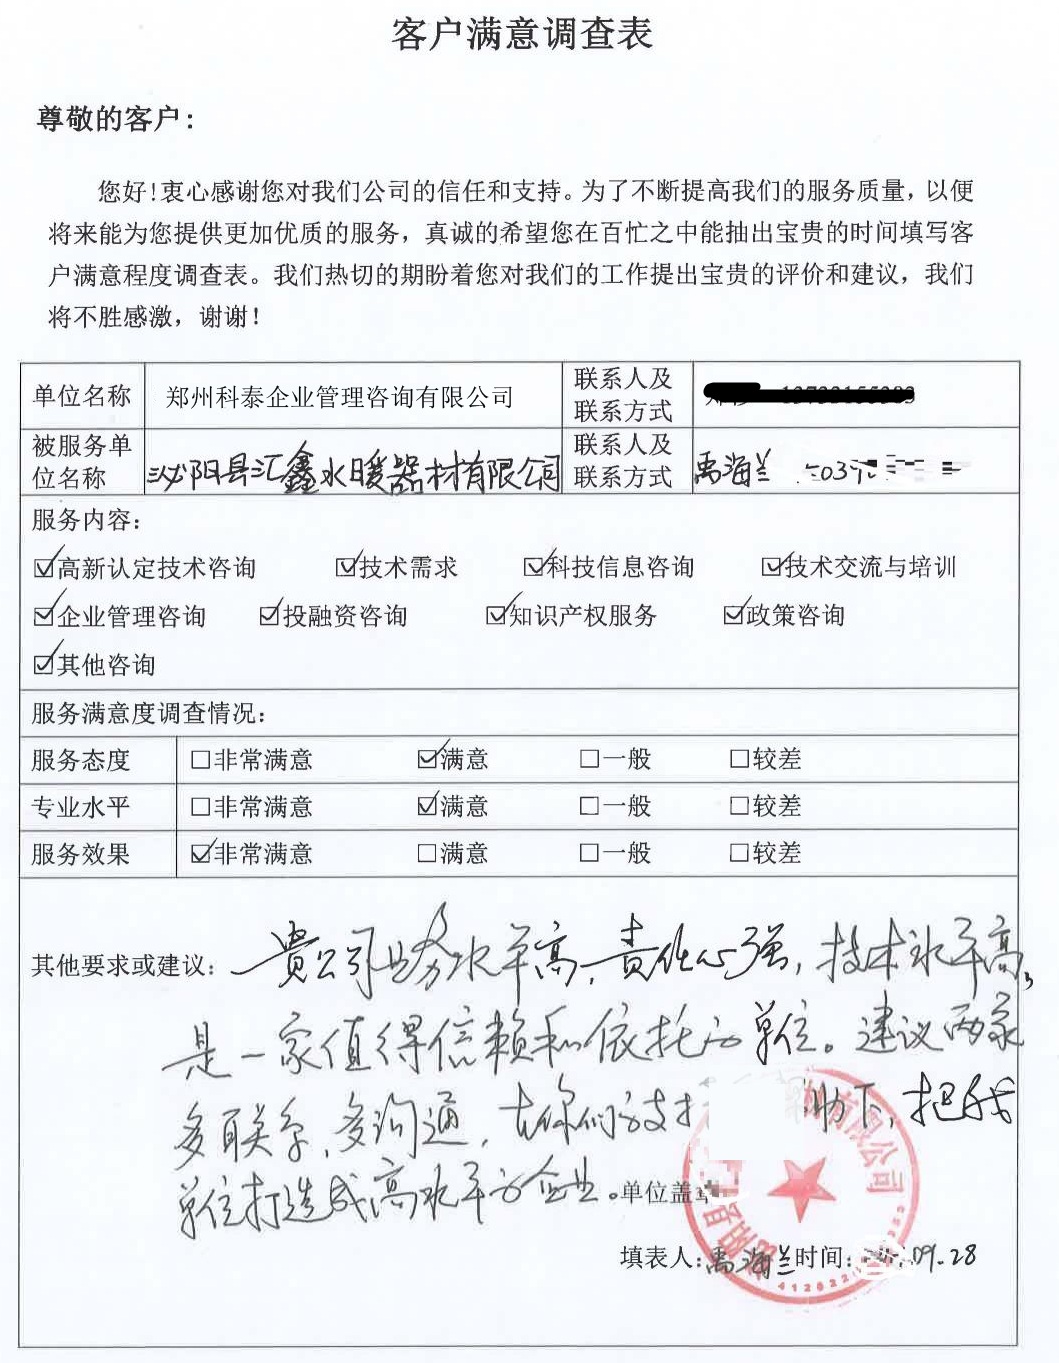 客户满意调查表
尊敬的客户：
您好！衷心感谢您对我们公司的信任和支持。为了不断提高我们的服务质量，以便
将来能为您提供更加优质的服务，真诚的希望您在百忙之中能抽出宝贵的时间填写客
户满意程度调查表。我们热切的期盼着您对我们的工作提出宝贵的评价和建议，我们
将不胜感激，谢谢！
单位名称 郑州科泰企业管理咨询有限公司 联系人及
联系方式
被服务单
位名称 泌阳县汇鑫水暖器材有限公司 联系人及
联系方式 禹海兰
服务内容：
☑高新认定技术咨询 ☑技术需求 ☑科技信息咨询 ☑技术交流与培训
☑企业管理咨询 ☑投融资咨询 ☑知识产权服务 ☑政策咨询
☑其他咨询
服务满意度调查情况：
服务态度 □非常满意 ☑满意 □一般 □较差
专业水平 □非常满意 ☑满意 □一般 □较差
服务效果 ☑非常满意 □满意 □一般 □较差
其他要求或建议：贵公司业务水平高，责任心强，技术水平高，
是一家值得信赖和依托的单位。建议两家
多联系，多沟通，在你们的支持 帮助下，把我
单位打造成高水平的企业。
单位盖章
填表人：禹海兰 时间： 09.28